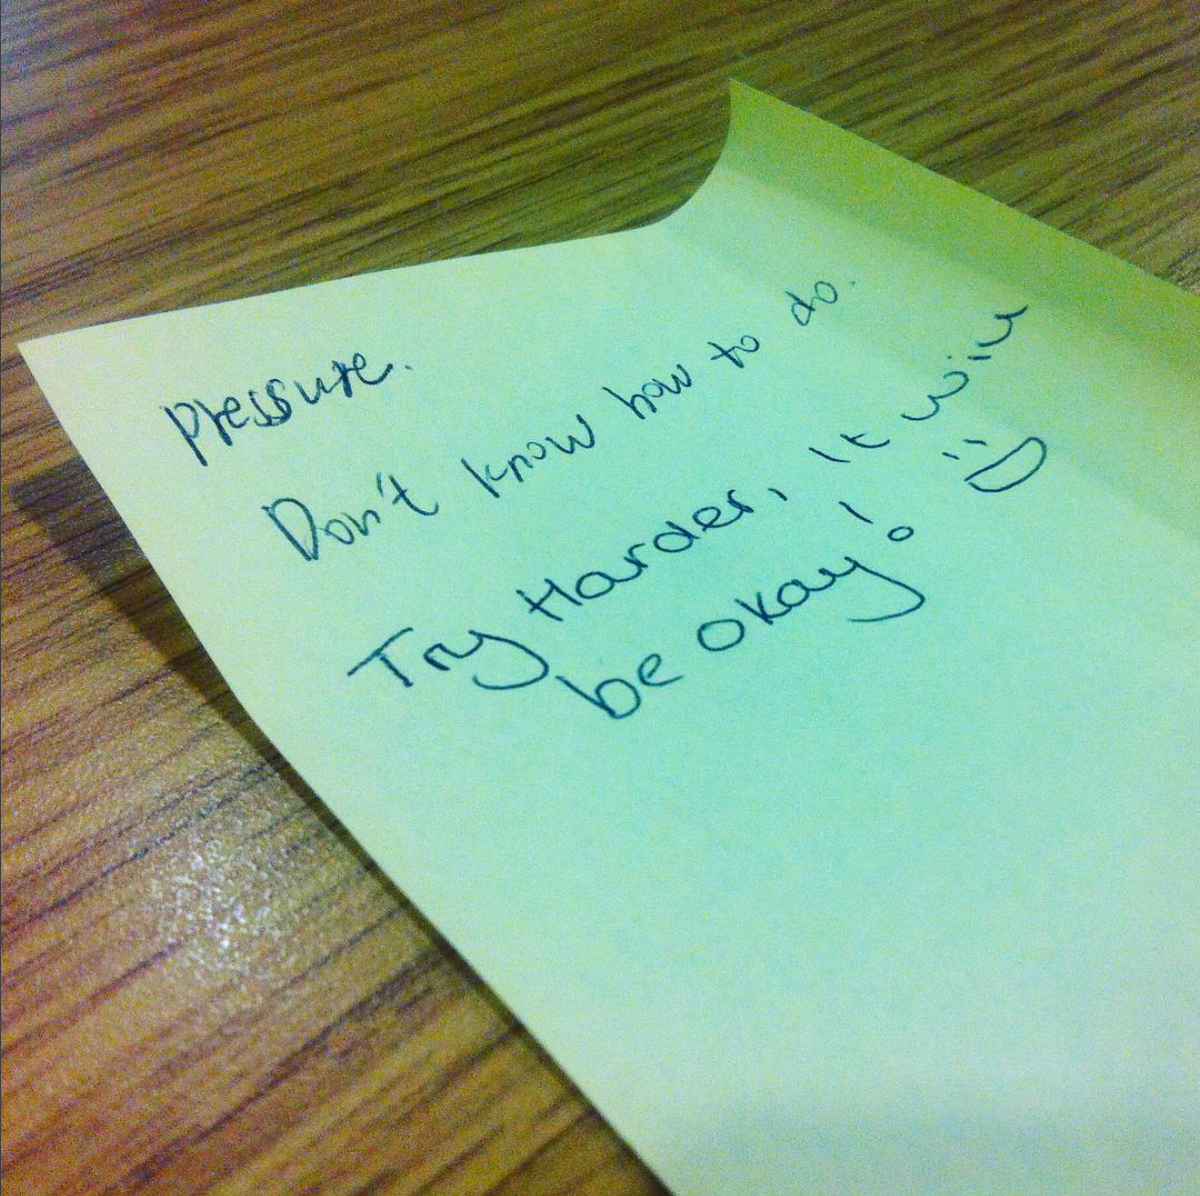 pressure.
Don't know how to do.
Try Harder, It will
be okay! :D